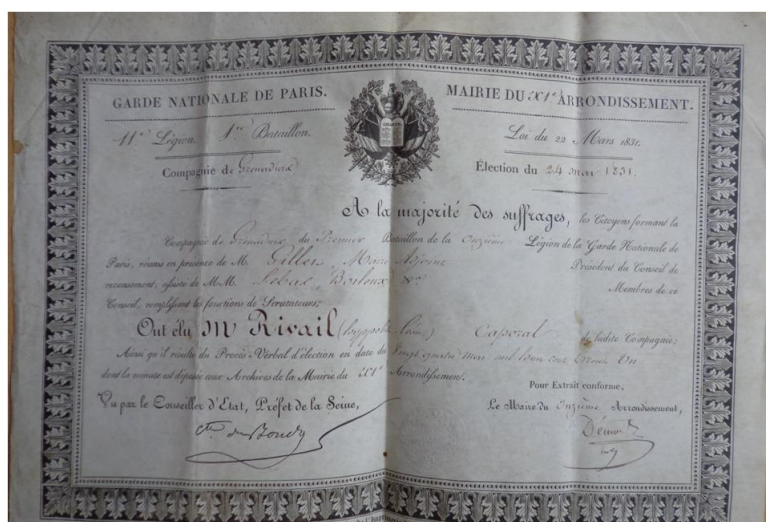 GARDE NATIONALE DE PARIS.
MAIRIE DU XIe ARRONDISSEMENT.
11e Légion. 1er Bataillon.
Loi du 22 Mars 1831.
Compagnie de Grenadiers
Élection du 24 mai 1831.
A la majorité des suffrages, les Citoyens formant la
Compagnie de Grenadiers du Premier Bataillon de la Onzième Légion de la Garde Nationale de
Paris, réunis en présence de M. Gillet Maire Adjoint Président du Conseil de
recensement, assisté de MM. Membres de ce
Conseil, remplissant les fonctions de Scrutateurs;
Ont élu M Rivail Caporal de ladite Compagnie;
Ainsi qu'il résulte du Procès-Verbal d'élection en date du Vingt quatre mai mil huit cent trente Un
dont la minute est déposée aux Archives de la Mairie du XIe Arrondissement.
Pour Extrait conforme,
Vu par le Conseiller d'Etat, Préfet de la Seine,
Le Maire du Onzième Arrondissement,
Cte de Bondy